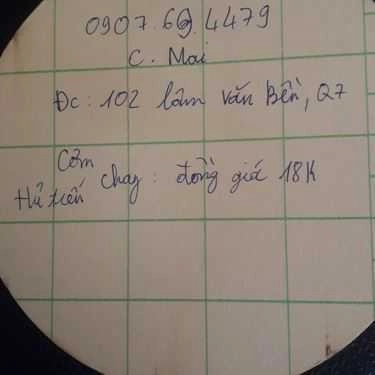 0907.69.4479
C. Mai
Đc: 102 lâm văn Bền, Q7
Cơm
Hủ tiếu chay: đồng giá 18K